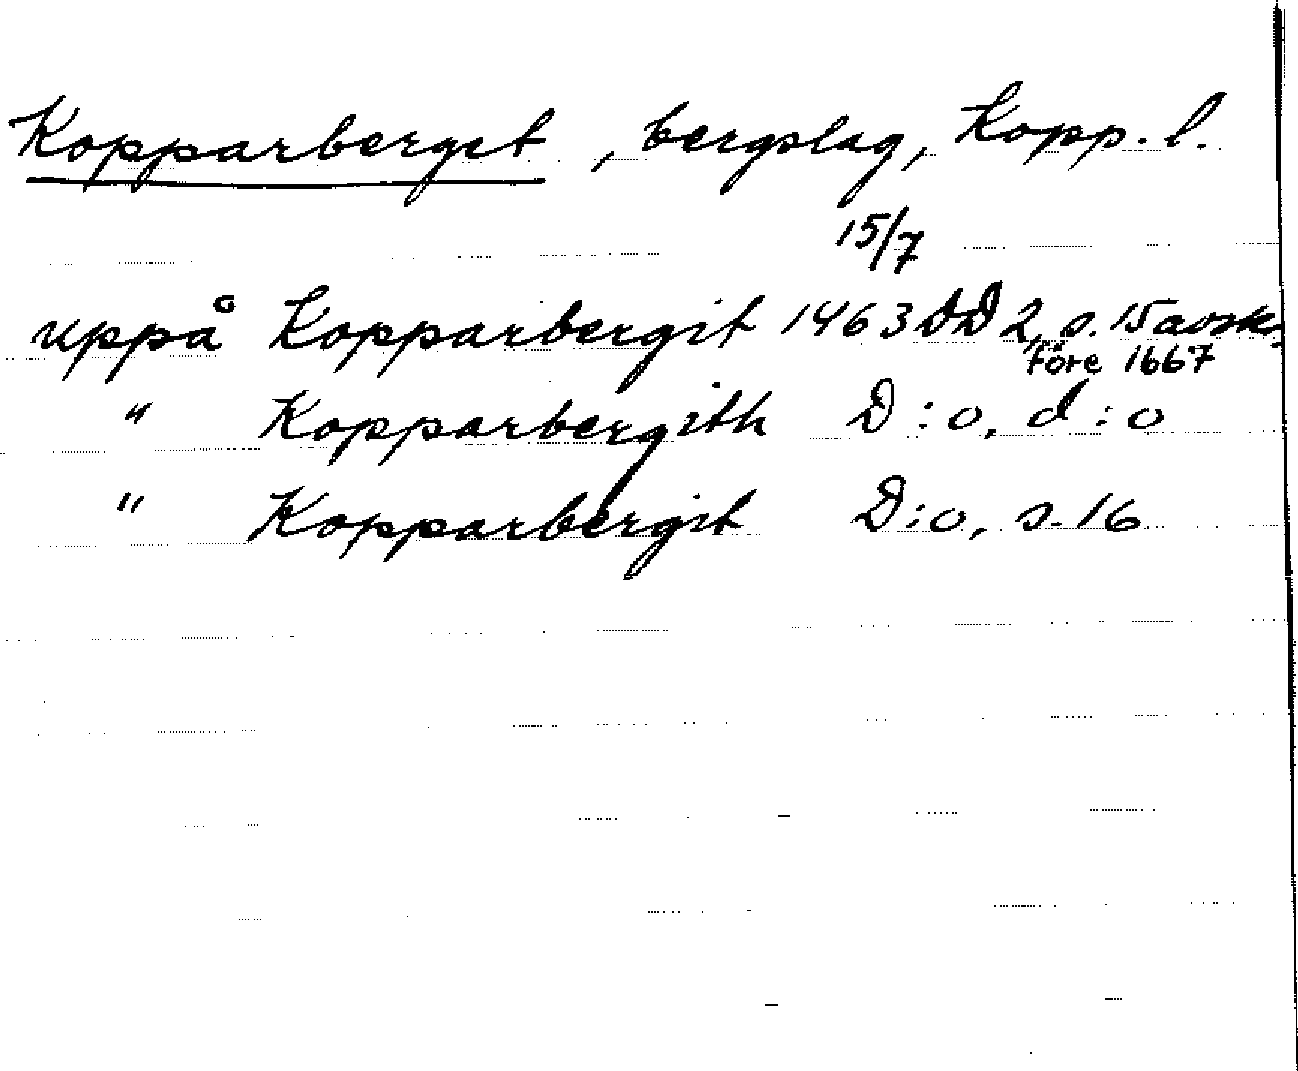 Kopparberget, bergslag, Kopp. l.
15/7
uppå Kopparbergit 1463 DD 2, s. 15 avsk.
före 1667
" Kopparbergith D:o, d:o
" Kopparbergit D:o, s. 16